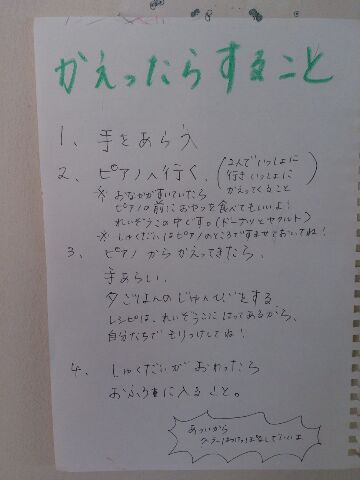 かえったらすること
1、手をあらう
2、ピアノへ行く。(2人でいっしょに行きいっしょにかえってくること)
※おなかがすいていたら
ピアノの前におやつを食べてもいいよ!
れいぞうこの中です。(ドーナツとヤクルト)
※しゅくだいはピアノのところですませておいてね!
3、ピアノからかえってきたら、
手あらい、
夕ごはんのじゅんびをする。
レシピは、れいぞうこにはってあるから、
自分たちでもりつけしてね!
4、しゅくだいがおわったら
おふろに入ること。
あついから
クーラーはつけ